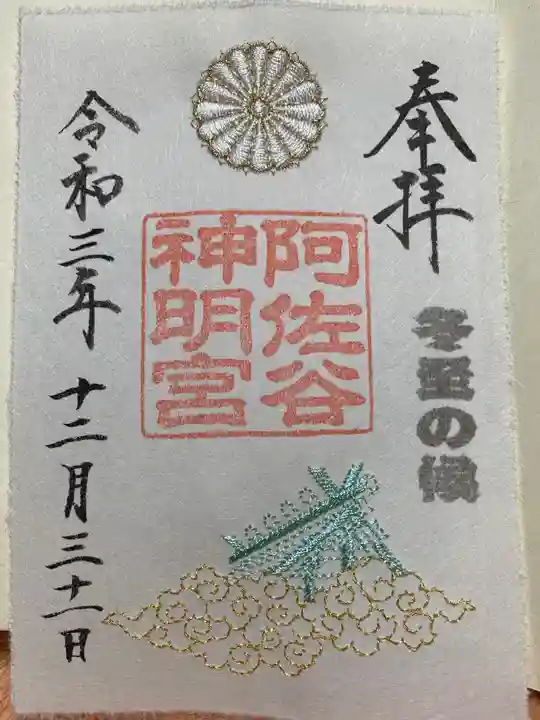 奉拝
冬至の候
阿佐谷
神明宮
令和三年十二月三十一日